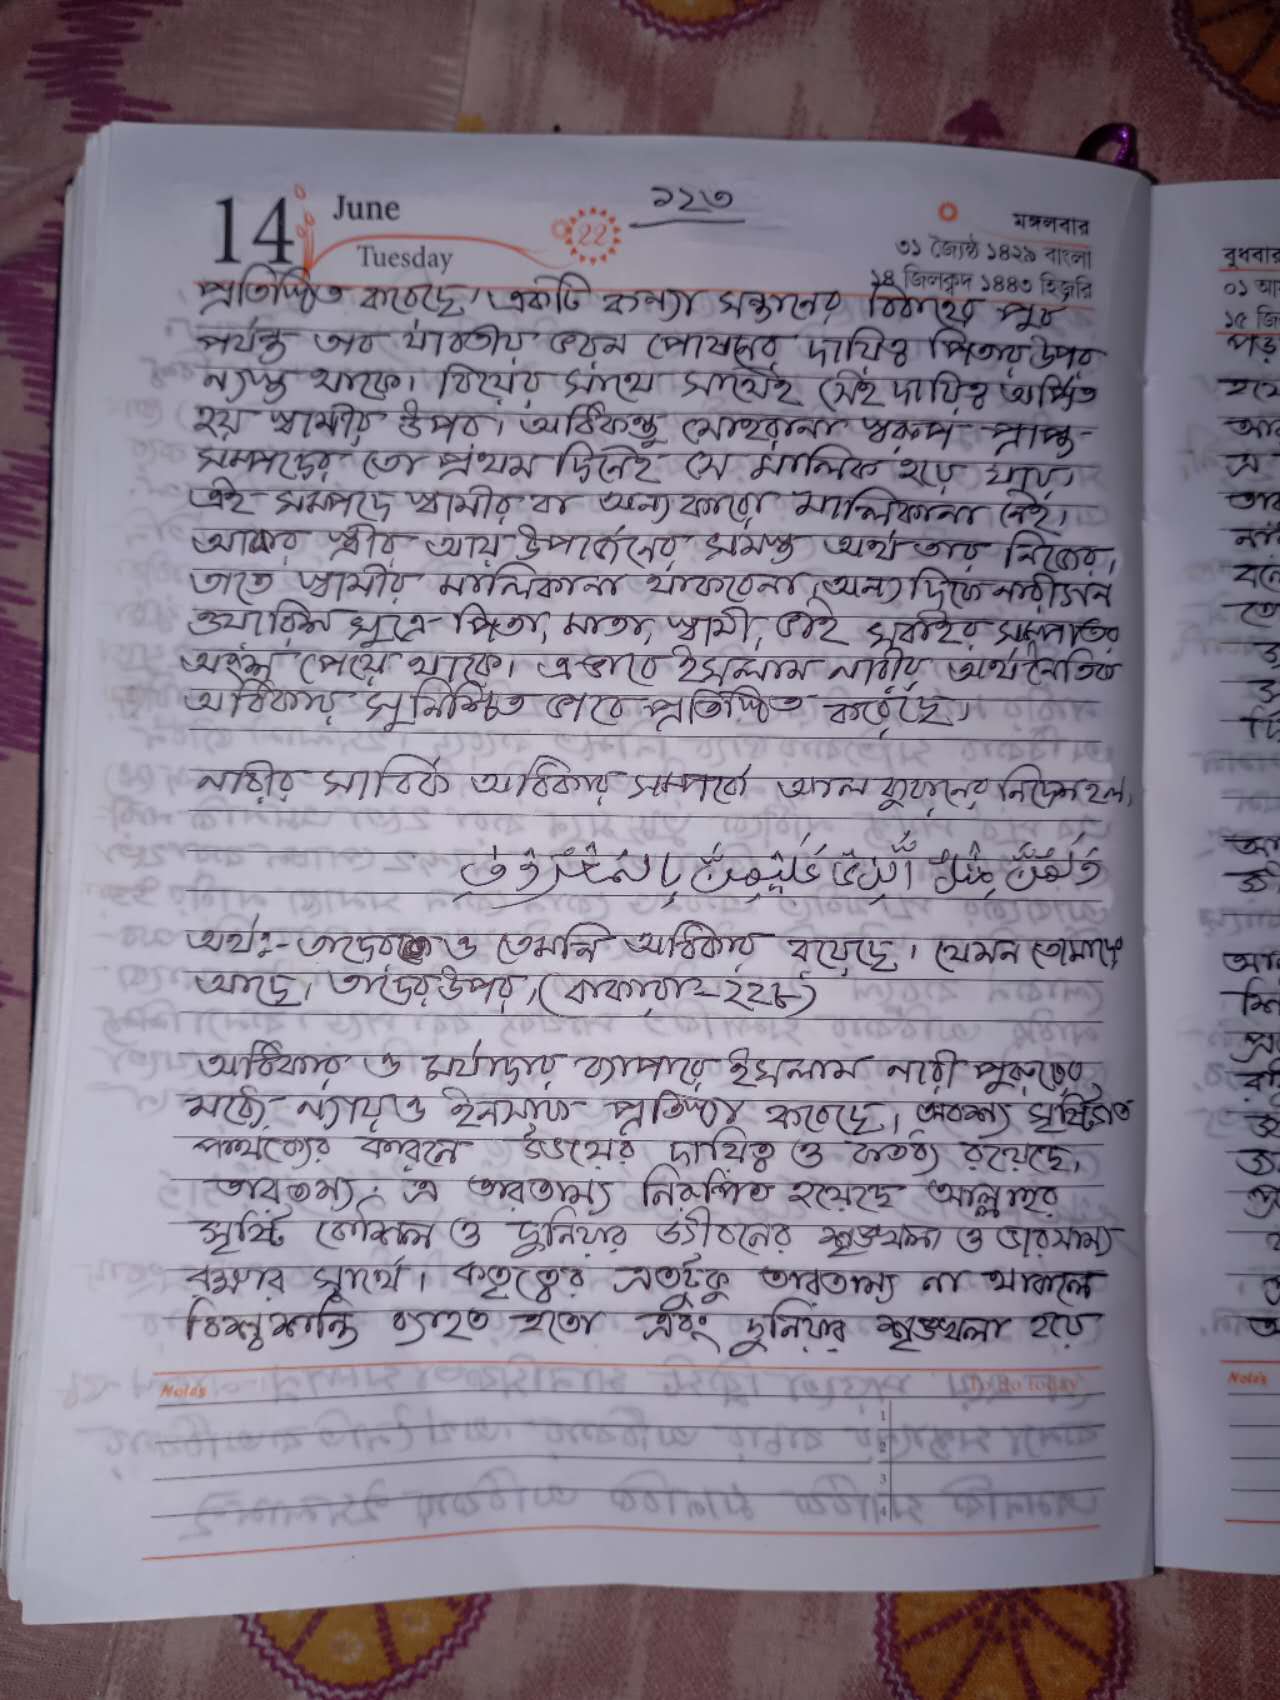 14 June
Tuesday
22
১২৩
মঙ্গলবার
৩১ জ্যৈষ্ঠ ১৪২৯ বাংলা
১৪ জিলকদ ১৪৪৩ হিজরি
প্রতিষ্ঠিত করেছে। একটি কন্যা সন্তানের বিবাহের পূর্ব
পর্যন্ত তার যাবতীয় ভরন পোষনের দায়িত্ব পিতার উপর
ন্যস্ত থাকে। বিয়ের সাথে সাথেই সেই দায়িত্ব অর্পিত
হয় স্বামীর উপর। অধিকন্তু মোহরানা স্বরূপ প্রাপ্ত
সম্পদের তো প্রথম দিনেই সে মালিক হয়ে যায়।
এই সম্পদে স্বামীর বা অন্য কারো মালিকানা নেই।
আবার স্ত্রীর আয় উপার্জনের সমস্ত অর্থ তার নিজের,
তাতে স্বামীর মালিকানা থাকবেনা। অন্য দিকে নারীগন
ওয়ারিশ সুত্রে পিতা, মাতা, স্বামী, ভাই সবাইর সম্পত্তির
অংশ পেয়ে থাকে। এভাবে ইসলাম নারীর অর্থনৈতিক
অধিকার সুনিশ্চিত ভাবে প্রতিষ্ঠিত করেছে।
নারীর সার্বিক অধিকার সম্পর্কে আল কুরানের নির্দেশ হল,
অর্থঃ- তাদের ও তেমনি অধিকার রয়েছে। যেমন তোমাদের
আছে, তাদের উপর, (বাকারা-২২৮)
অধিকার ও মর্যাদার ব্যাপারে ইসলাম নারী পুরুষের
মধ্যে ন্যায় ও ইনসাফ প্রতিষ্ঠা করেছে। অবশ্য সৃষ্টিগত
পার্থক্যের কারনে উভয়ের দায়িত্ব ও কর্তব্য রয়েছে,
তারতম্য, এ তারতাম্য নিরূপিত হয়েছে আল্লাহর
সৃষ্টি কৌশল ও দুনিয়ার জীবনের শৃঙ্খলা ও ভারসাম্য
রক্ষার স্বার্থে। কতৃত্বের এতটুকু তারতাম্য না থাকলে
বিশ্বশান্তি ব্যাহত হতো এবং দুনিয়ার শৃঙ্খলা হয়ে
Notes
To Do Today
1
2
3
4
বুধবার
Notes